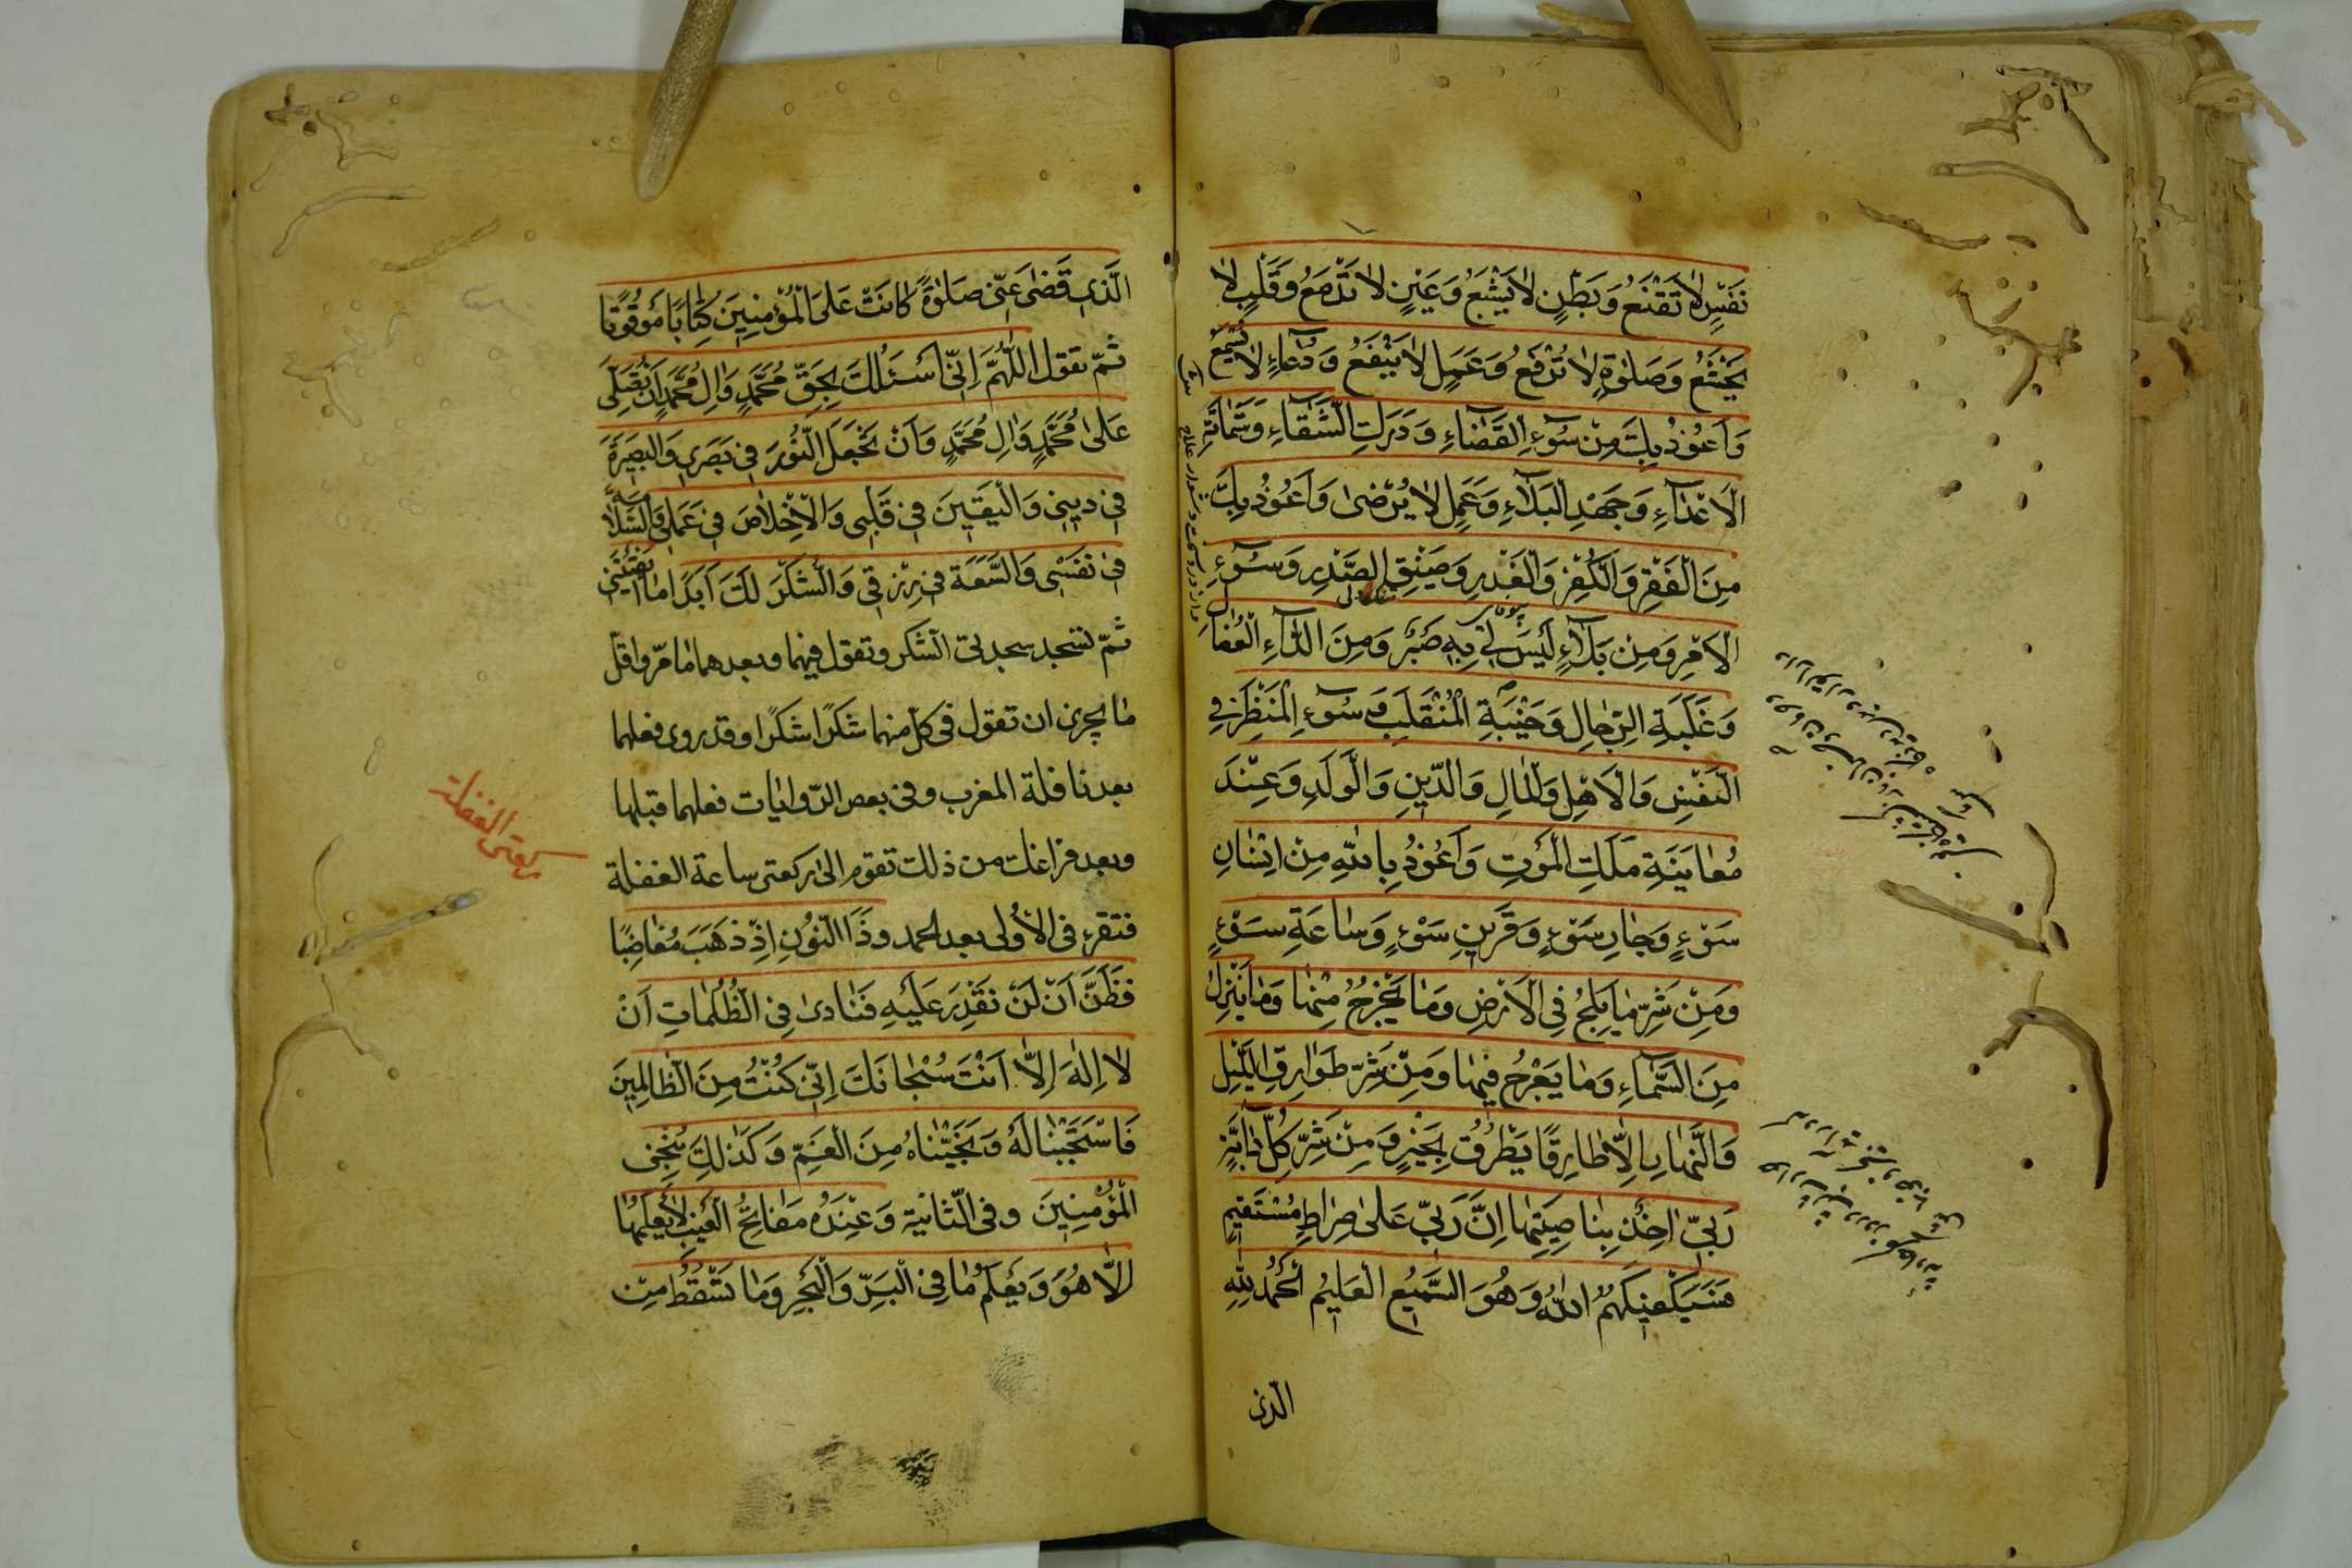 نَفْسٍ لَا تَقْنَعُ وَبَطْنٍ لَا يَشْبَعُ وَعَيْنٍ لَا تَدْمَعُ وَقَلْبٍ لَا
يَخْشَعُ وَصَلٰوةٍ لَا تُرْفَعُ وَعَمَلٍ لَا يَنْفَعُ وَدُعَاءٍ لَا تُسْمَعُ
وَاَعُوذُ بِكَ مِنْ سُوۤءِ الْقَضَاءِ وَدَرَكِ الشَّقَاءِ وَشَمَاتَةِ
الْاَعْدَاۤءِ وَجَهْدِ الْبَلَاۤءِ وَعَمَلٍ لَا يُرْضٰى وَاَعُوذُ بِكَ
مِنَ الْفَقْرِ وَالْكُفْرِ وَالْغَدْرِ وَضِيْقِ الصَّدْرِ وَسُوۤءِ
الْاَمْرِ وَمِنْ بَلَاۤءٍ لَيْسَ لِي بِهِ صَبْرٌ وَمِنَ الدَّاۤءِ الْعُضَالِ
وَغَلَبَةِ الرِّجَالِ وَخَيْبَةِ الْمُنْقَلَبِ وَسُوۤءِ الْمَنْظَرِ فِي
النَّفْسِ وَالْاَهْلِ وَالْمَالِ وَالدِّينِ وَالْوَلَدِ وَعِنْدَ
مُعَايَنَةِ مَلَكِ الْمَوْتِ وَاَعُوذُ بِاللّٰهِ مِنْ اِنْسَانِ
سَوْءٍ وَجَارِ سَوْءٍ وَقَرِينِ سَوْءٍ وَسَاعَةِ سَوْءٍ
وَمِنْ شَرِّ مَا يَلِجُ فِي الْاَرْضِ وَمَا يَخْرُجُ مِنْهَا وَمَا يَنْزِلُ
مِنَ السَّمَاۤءِ وَمَا يَعْرُجُ فِيهَا وَمِنْ شَرِّ طَوَارِقِ اللَّيْلِ
وَالنَّهَارِ اِلَّا طَارِقًا يَطْرُقُ بِخَيْرٍ وَمِنْ شَرِّ كُلِّ دَابَّةٍ
رَبِّيۤ اٰخِذٌ بِنَاصِيَتِهَا اِنَّ رَبِّي عَلٰى صِرَاطٍ مُسْتَقِيمٍ
فَسَيَكْفِيكَهُمُ اللّٰهُ وَهُوَ السَّمِيعُ الْعَلِيمُ الْحَمْدُ لِلّٰهِ
الّذى
الَّذِي قَضٰى عَنِّي صَلٰوةً كَانَتْ عَلَى الْمُؤْمِنِينَ كِتَابًا مَوْقُوتًا
ثمّ تقول اَللّٰهُمَّ اِنِّي اَسْئَلُكَ بِحَقِّ مُحَمَّدٍ وَاٰلِ مُحَمَّدٍ اَنْ تُصَلِّيَ
عَلٰى مُحَمَّدٍ وَاٰلِ مُحَمَّدٍ وَاَنْ تَجْعَلَ النُّورَ فِي بَصَرِي وَالْبَصِيرَةَ
فِي دِينِي وَالْيَقِينَ فِي قَلْبِي وَالْاِخْلَاصَ فِي عَمَلِي وَالسَّلَامَةَ
فِي نَفْسِي وَالسَّعَةَ فِي رِزْقِي وَالشُّكْرَ لَكَ اَبَدًا مَا اَبْقَيْتَنِي
ثمّ تسجد سجدتى الشّكر وتقول فيهما وبعدهما ما مرّ واقلّ
ما يجزى ان تقول فى كلّ منهما شكرًا شكرًا وقد روى فعلهما
بعد نافلة المغرب وفى بعض الرّوايات فعلهما قبلها
وبعد فراغك من ذلك تقوم الى ركعتى ساعة الغفلة
فتقرء فى الاُولى بعد الحمد وَذَا النُّونِ اِذْ ذَهَبَ مُغَاضِبًا
فَظَنَّ اَنْ لَنْ نَقْدِرَ عَلَيْهِ فَنَادٰى فِي الظُّلُمَاتِ اَنْ
لَا اِلٰهَ اِلَّا اَنْتَ سُبْحَانَكَ اِنِّي كُنْتُ مِنَ الظَّالِمِينَ
فَاسْتَجَبْنَا لَهُ وَنَجَّيْنَاهُ مِنَ الْغَمِّ وَكَذٰلِكَ نُنْجِي
الْمُؤْمِنِينَ وفى الثّانية وَعِنْدَهُ مَفَاتِحُ الْغَيْبِ لَا يَعْلَمُهَا
اِلَّا هُوَ وَيَعْلَمُ مَا فِي الْبَرِّ وَالْبَحْرِ وَمَا تَسْقُطُ مِنْ
ركعتى الغفلة